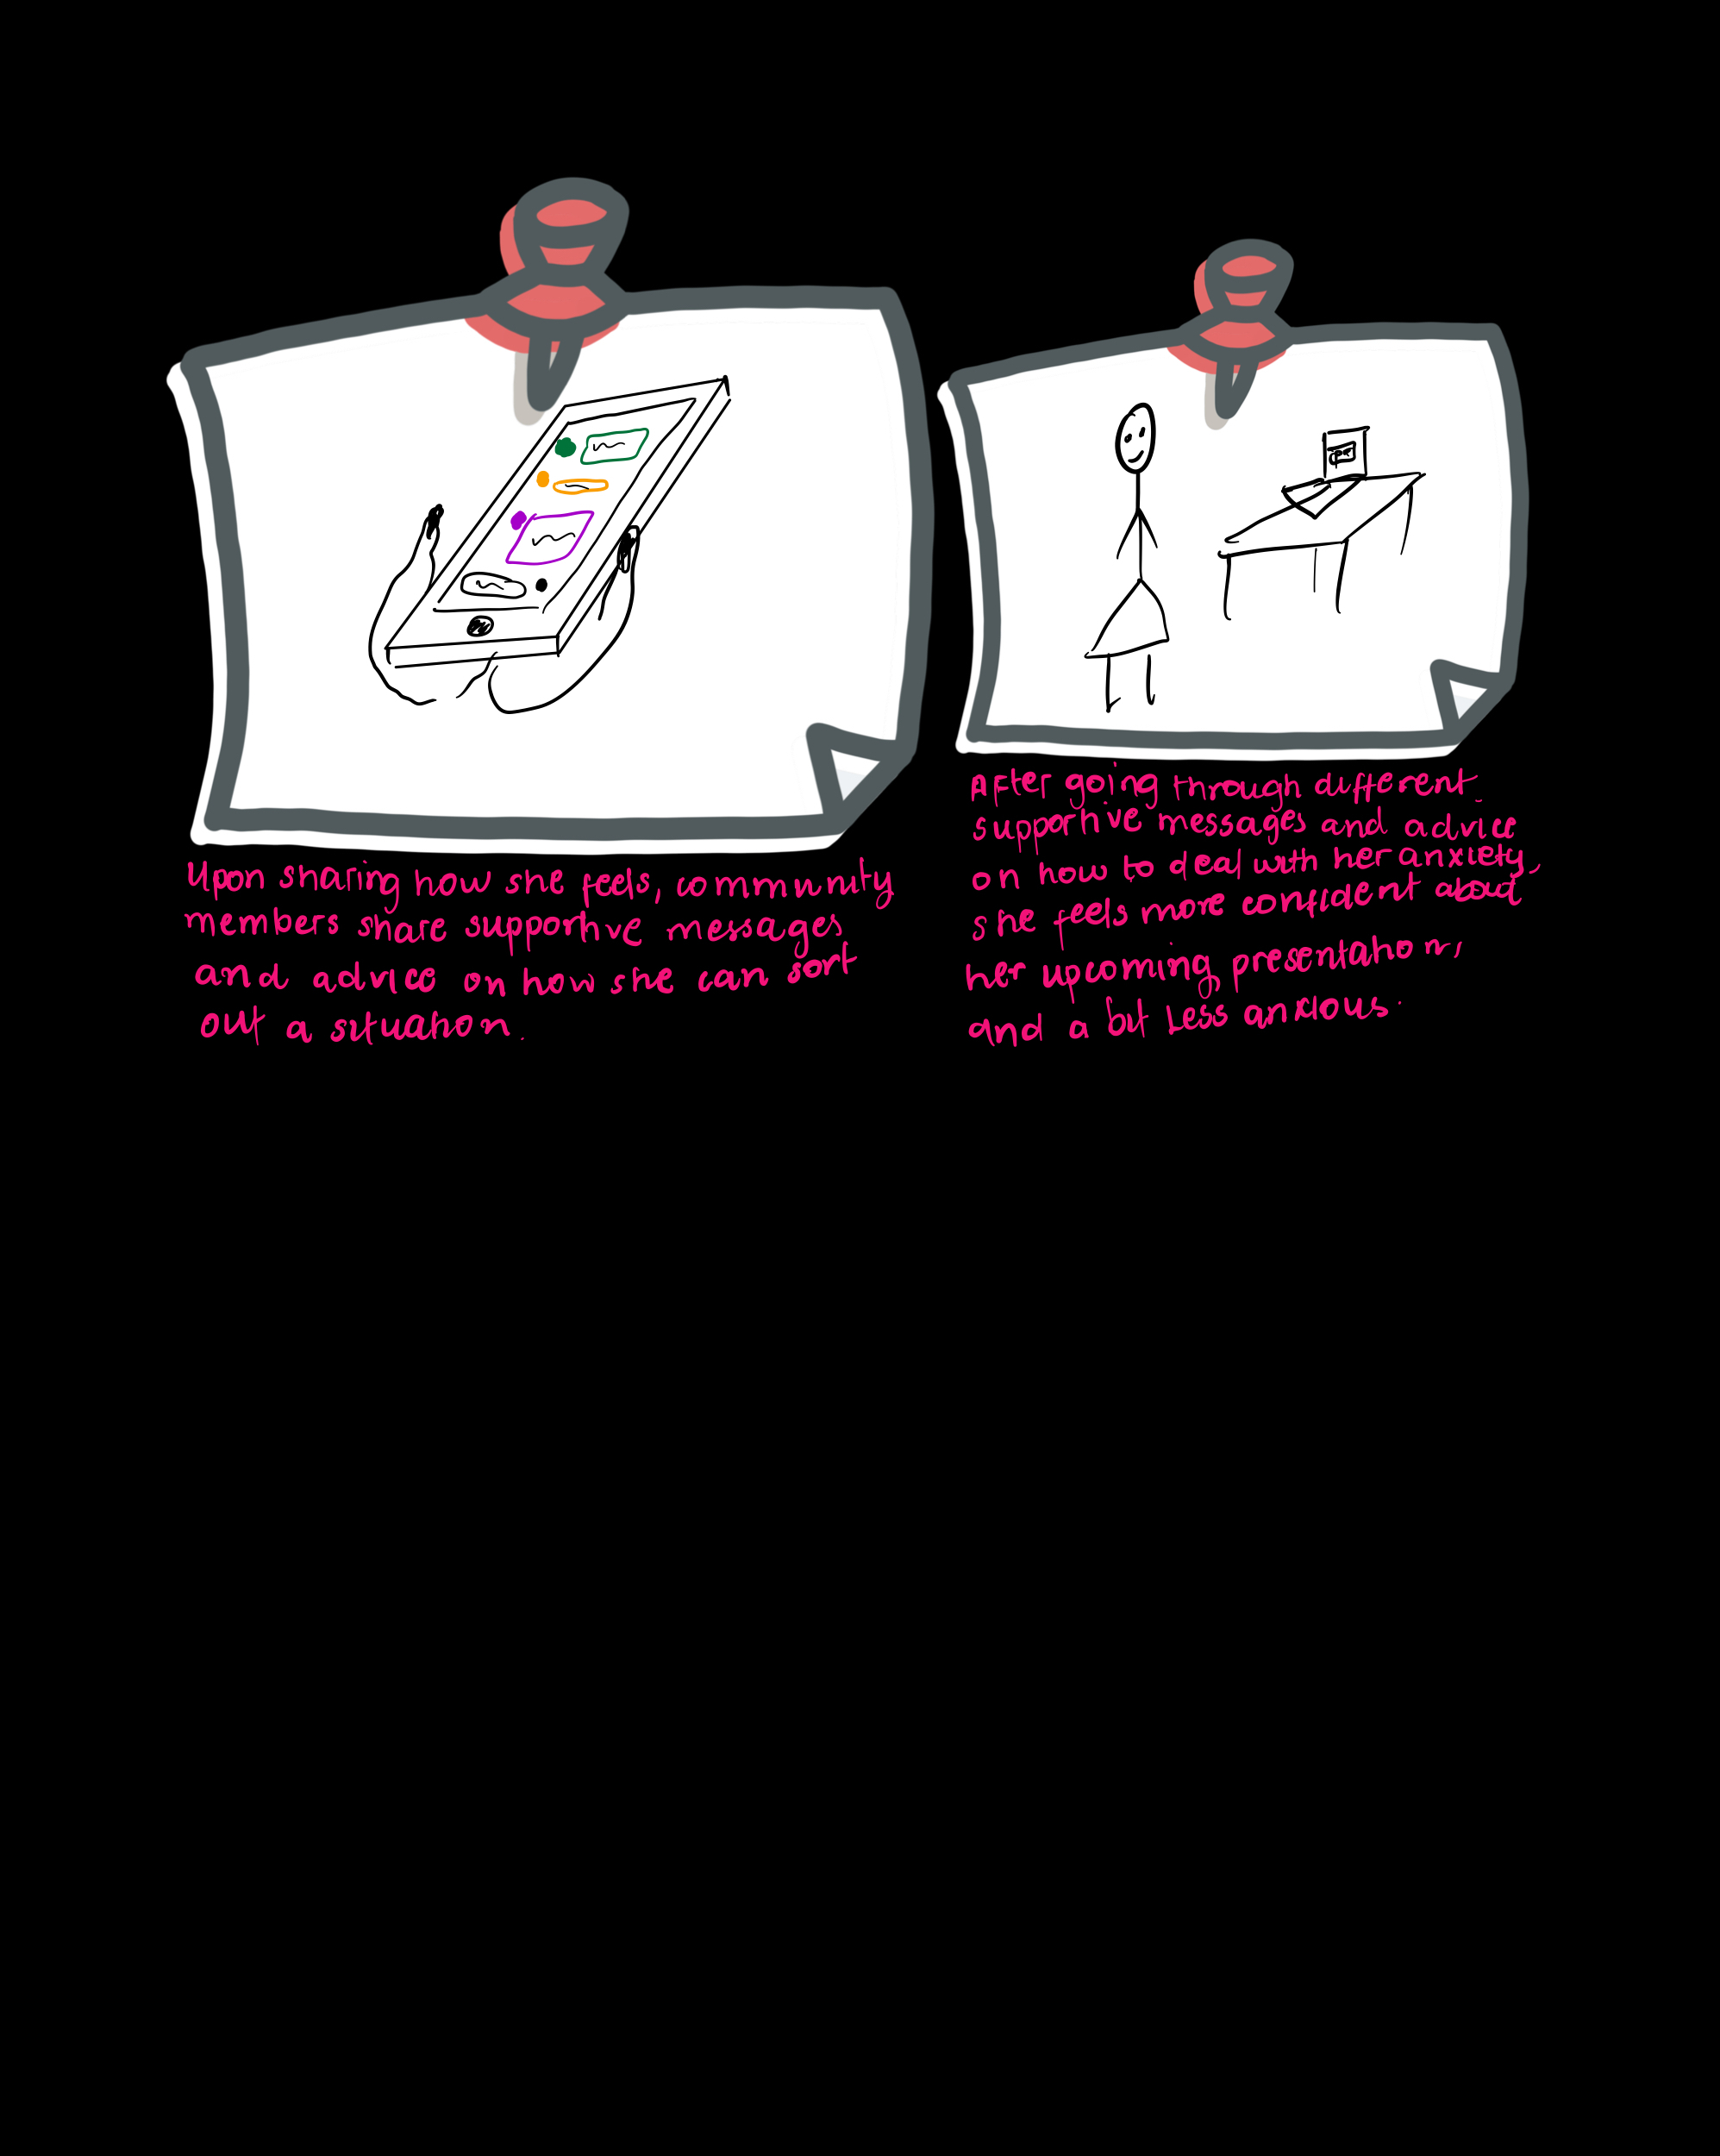 Upon sharing how she feels, community
members share supportive messages
and advice on how she can sort
out a situation.
After going through different
supportive messages and advice
on how to deal with her anxiety,
she feels more confident about
her upcoming presentation,
and a bit less anxious.